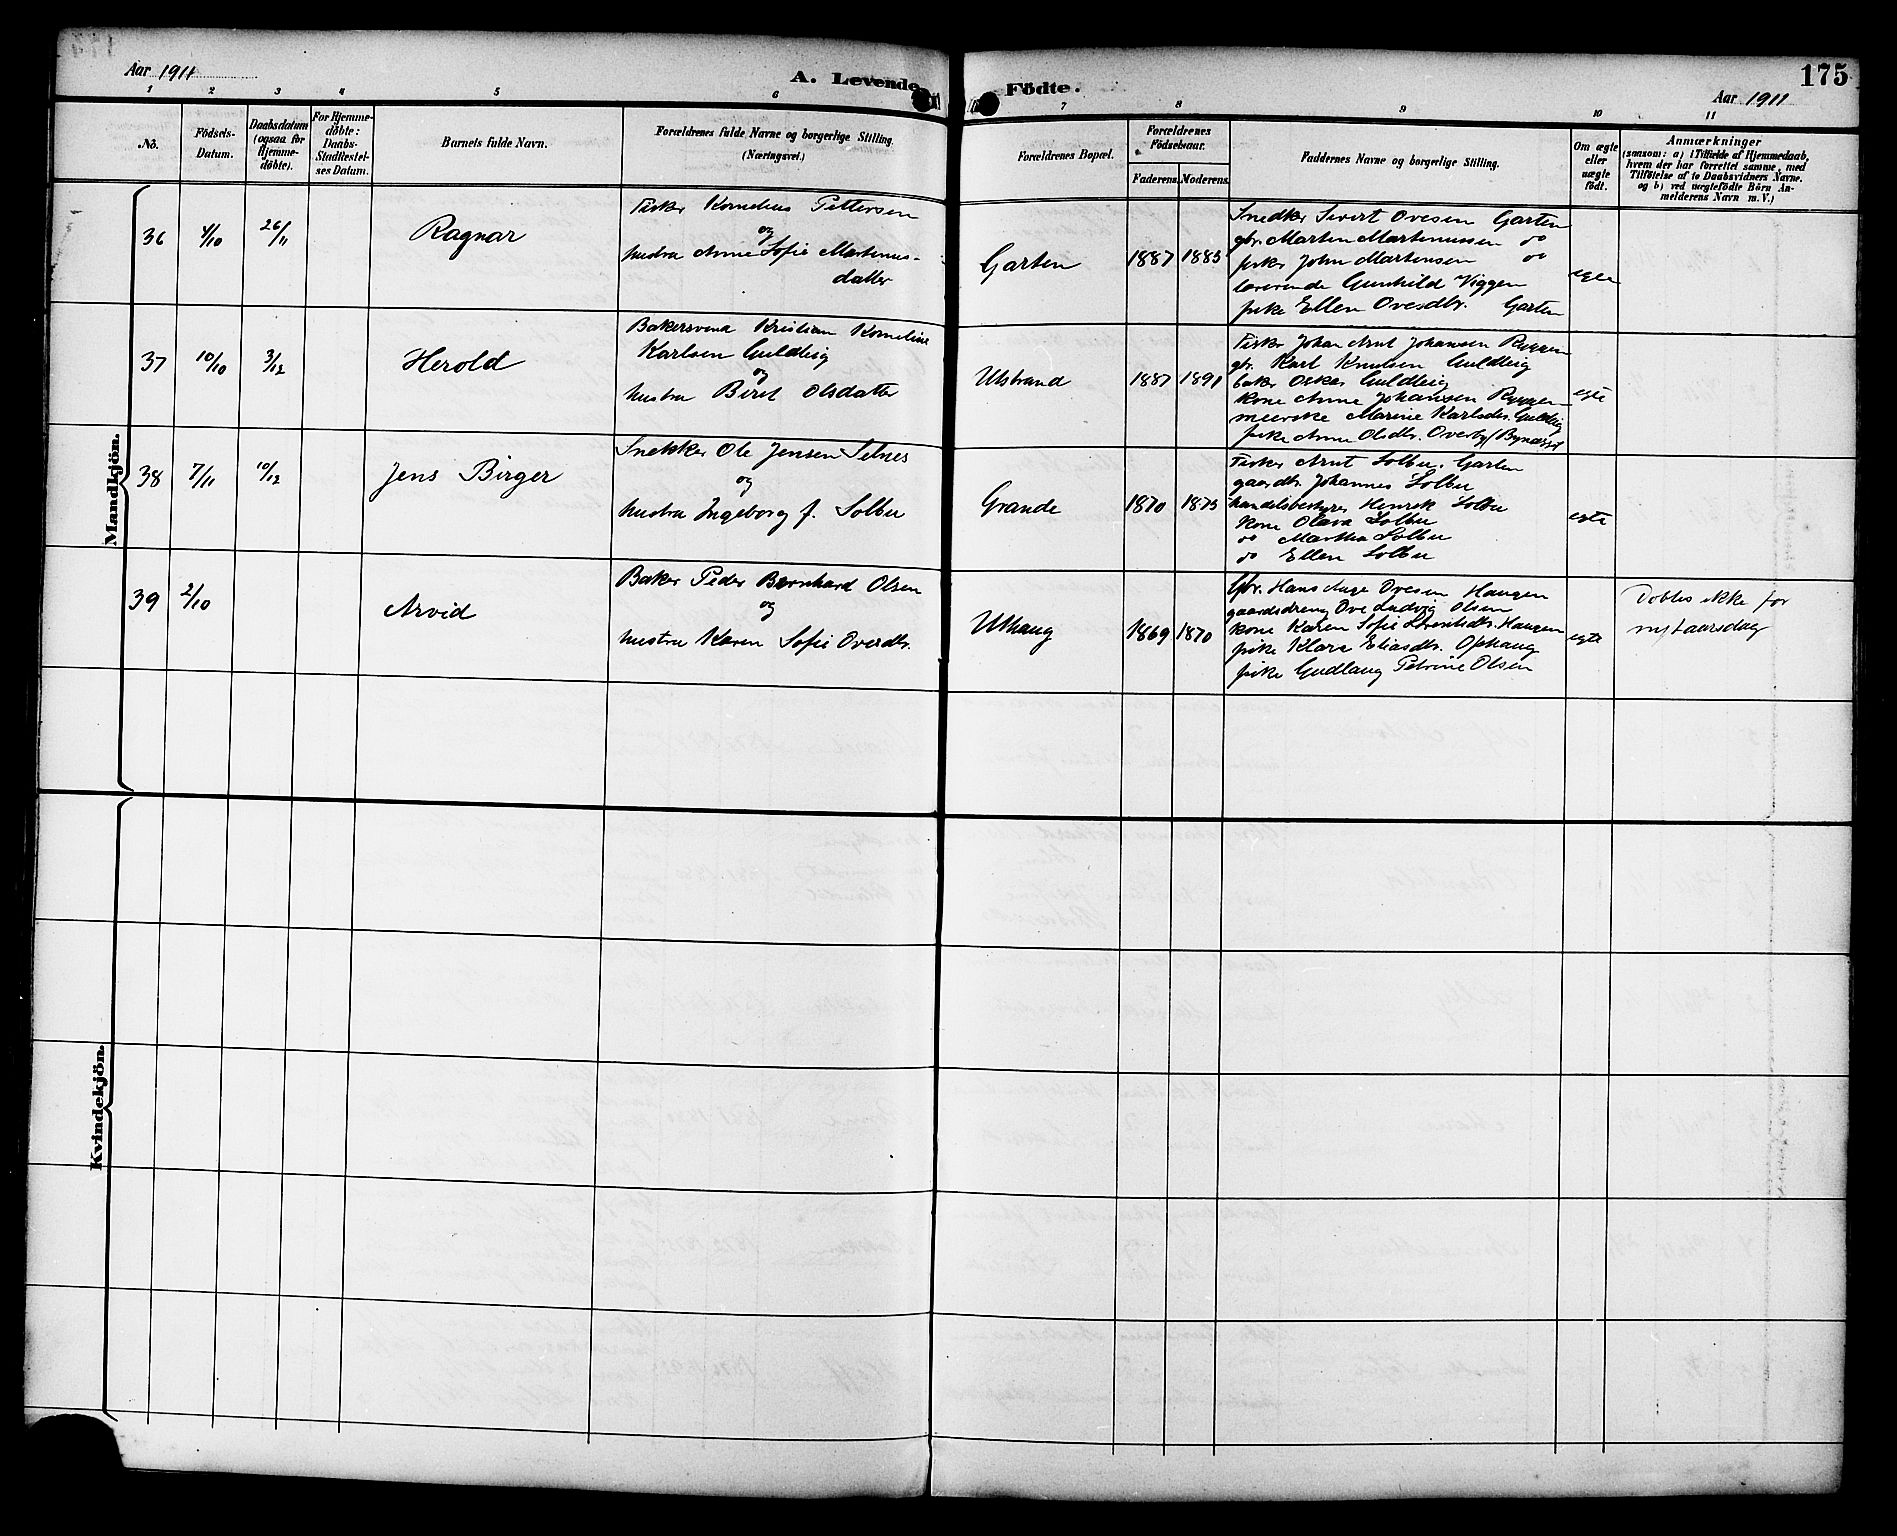 175
Aar 1911
A. Levende Födte.
Aar 1911
1 2 3 4 5 6 7 8 9 10 11
No.
Födsels-
Datum.
Daabsdatum
(ogsaa for
Hjemme-
döbte).
For Hjemme-
döbte:
Daabs-
Stadfæstel-
ses Datum.
Barnets fulde Navn.
Forældrenes fulde Navne og borgerlige Stilling
(Næringsvei.)
Forældrenes Bopæl.
Forældrenes
Födselsaar.
Faderens. Moderens.
Faddernes Navne og borgerlige Stilling.
Om ægte
eller
uægte
født.
Anmærkninger
(saasom: a) i Tilfælde af Hjemmedaab,
hvem der har forrettet samme, med
Tilföielse af to Daabsvidners Navne.
og b) ved uægtefödte Börn An-
melderens Navn m. V.)
Mandkjön.
36 4/10 26/11 Ragnar
Fisker Kornelius Pettersen
og
hustru Anna Sofie Martinus-
datter
Garten 1887 1885
Snedker Sivert Ovesen Garten
gbr. Marten Martinussen do
fisker John Martensen do
lærerinde Gunhild Viggen
pike Ellen Ovesdtr. Garten
egte
37 10/10 3/12 Herold
Bakersvend Kristian Kornelius
Karlsen Guldteig
og
hustru Beret Olsdatter
Ulstrand 1887 1891
Fisker Johan Arnt Johansen Ryggen
gbr. Karl Knutsen Guldteig
baker Oskar Guldteig
kone Anne Johansen Ryggen
meierske Marine Karlsdtr. Guldteig
pike Anne Olsdtr. Overby (Bynesset
egte
38 7/11 10/12 Jens Birger
Snekker Ole Jensen Selnes
og
hustru Ingeborg f. Solbu
Grande 1870 1875
Fisker Arnt Solbu, Garten
gaardbr. Johannes Solbu
handelsbestyrer Henrik Solbu
kone Olava Solbu
do Martha Solbu
do Ellen Solbu
egte
39 2/10 Arvid
Baker Peder Bernhard Olsen
og
hustru Karen Sofie Ovesdtr.
Uthaug 1869 1870
Gbr. Hans Aage Ovesen Haugen
gaardsdreng Ove Ludvig Olsen
kone Karen Sofie Lorentsdtr. Haugen
pike Klara Eliasdtr. Ophaug
pike Gudlaug Petrine Olsen
egte
Døbtes ikke før
nytaarsdag
Kvindekjön.